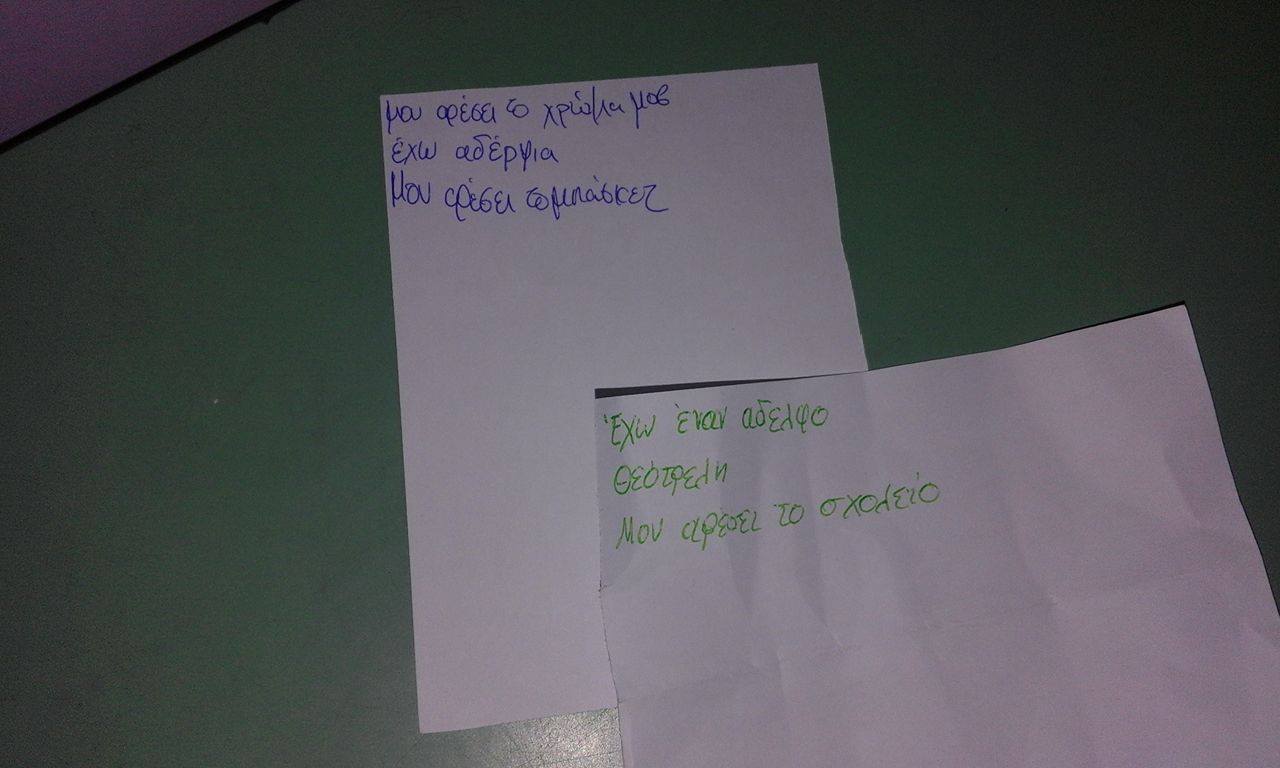 μου αρέσει το χρώμα μοβ
έχω αδέρφια
Μου αρέσει το μπάσκετ
Έχω έναν αδελφο
Μου αρέσει το σχολείο